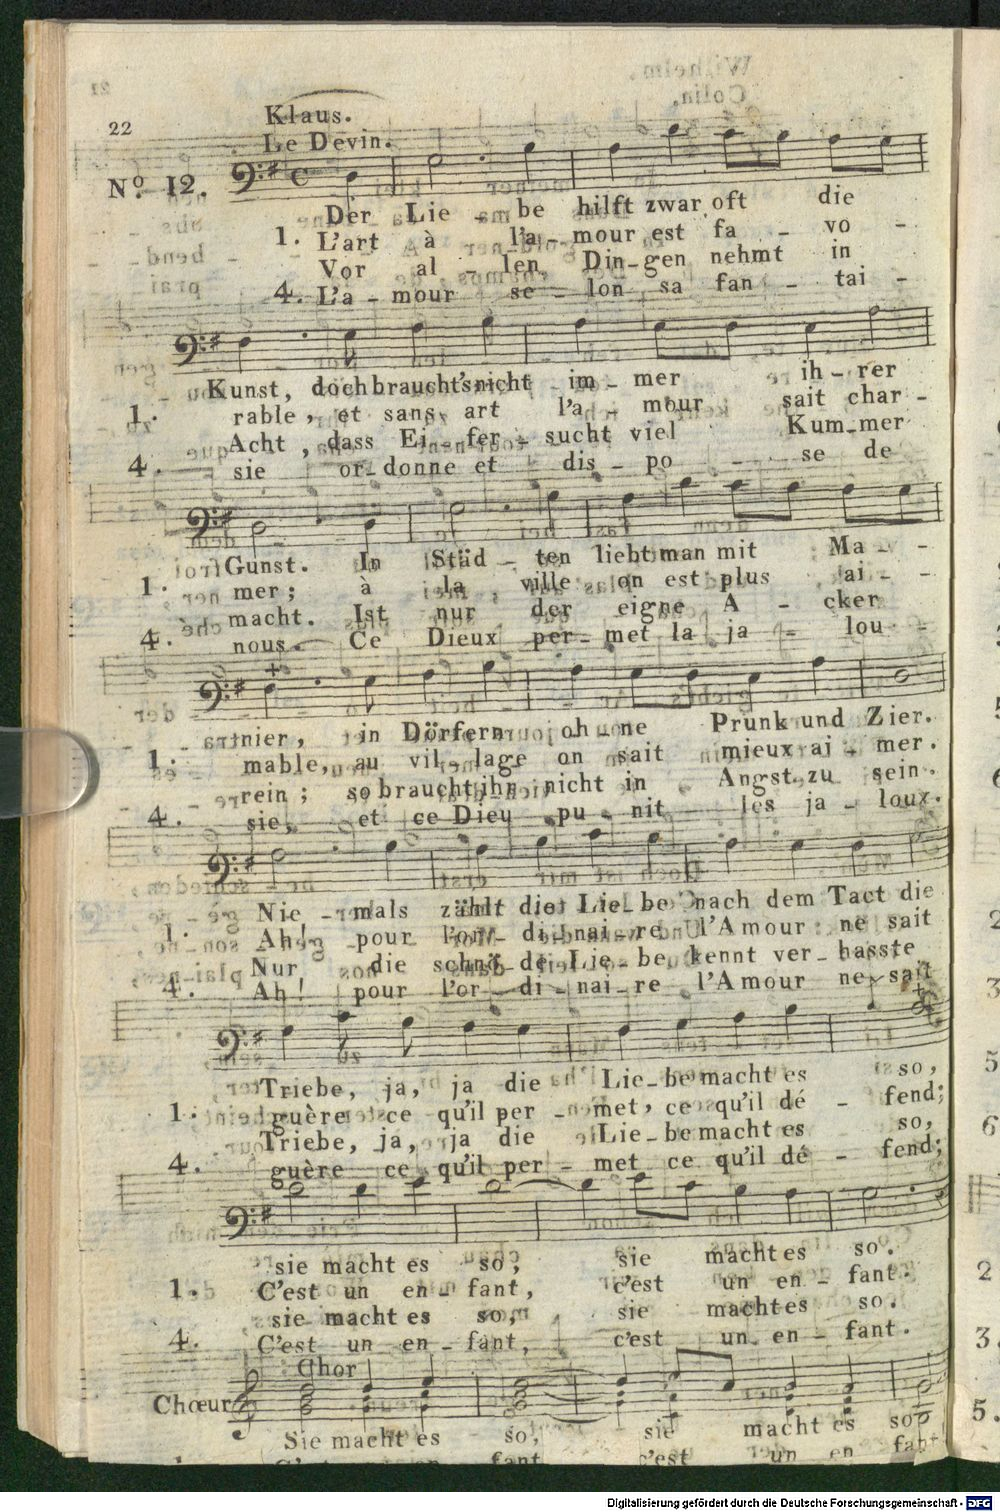 22
Klaus.
Le Devin.
No. 12.
Der Lie - be hilft zwar oft die
1. L'art à l'a - mour est fa - vo -
Vor al - len Din - gen nehmt in
4. L'a - mour se - lon sa fan - tai -
Kunst, doch braucht's nicht im - mer ih - rer
1. rable, et sans art l'a - mour sait char -
Acht, dass Ei - fer - sucht viel Kum - mer
4. sie or - donne et dis - po - se de
Gunst. In Städ - ten liebt man mit Ma -
1. mer; à la ville on est plus ai -
macht. Ist nur der eigne A - cker
4. nous. Ce Dieux per - met la ja - lou -
nier, in Dörfern oh - ne Prunk und Zier.
1. mable, au vil - lage on sait mieux ai - mer.
rein; so braucht ihr nicht in Angst zu sein.
4. sie, et ce Dieu pu - nit les ja - loux.
Nie - mals zählt die Lie - be nach dem Tact die
1. Ah! pour l'or - di - nai - re l'Amour ne sait
Nur die schnö - de Lie - be kennt ver - hasste
4. Ah! pour l'or - di - nai - re l'Amour ne sait
Triebe, ja, ja die Lie - be macht es so,
1. guère ce qu'il per - met, ce qu'il dé - fend;
Triebe, ja, ja die Lie - be macht es so,
4. guère ce qu'il per - met ce qu'il dé - fend;
sie macht es so, sie macht es so.
1. C'est un en - fant, c'est un en - fant.
sie macht es so, sie macht es so.
4. C'est un en - fant, c'est un en - fant.
Chor
Chœur
Sie macht es so, sie macht es so
1. C'est un en fant c'est un en fant
Digitalisierung gefördert durch die Deutsche Forschungsgemeinschaft - DFG